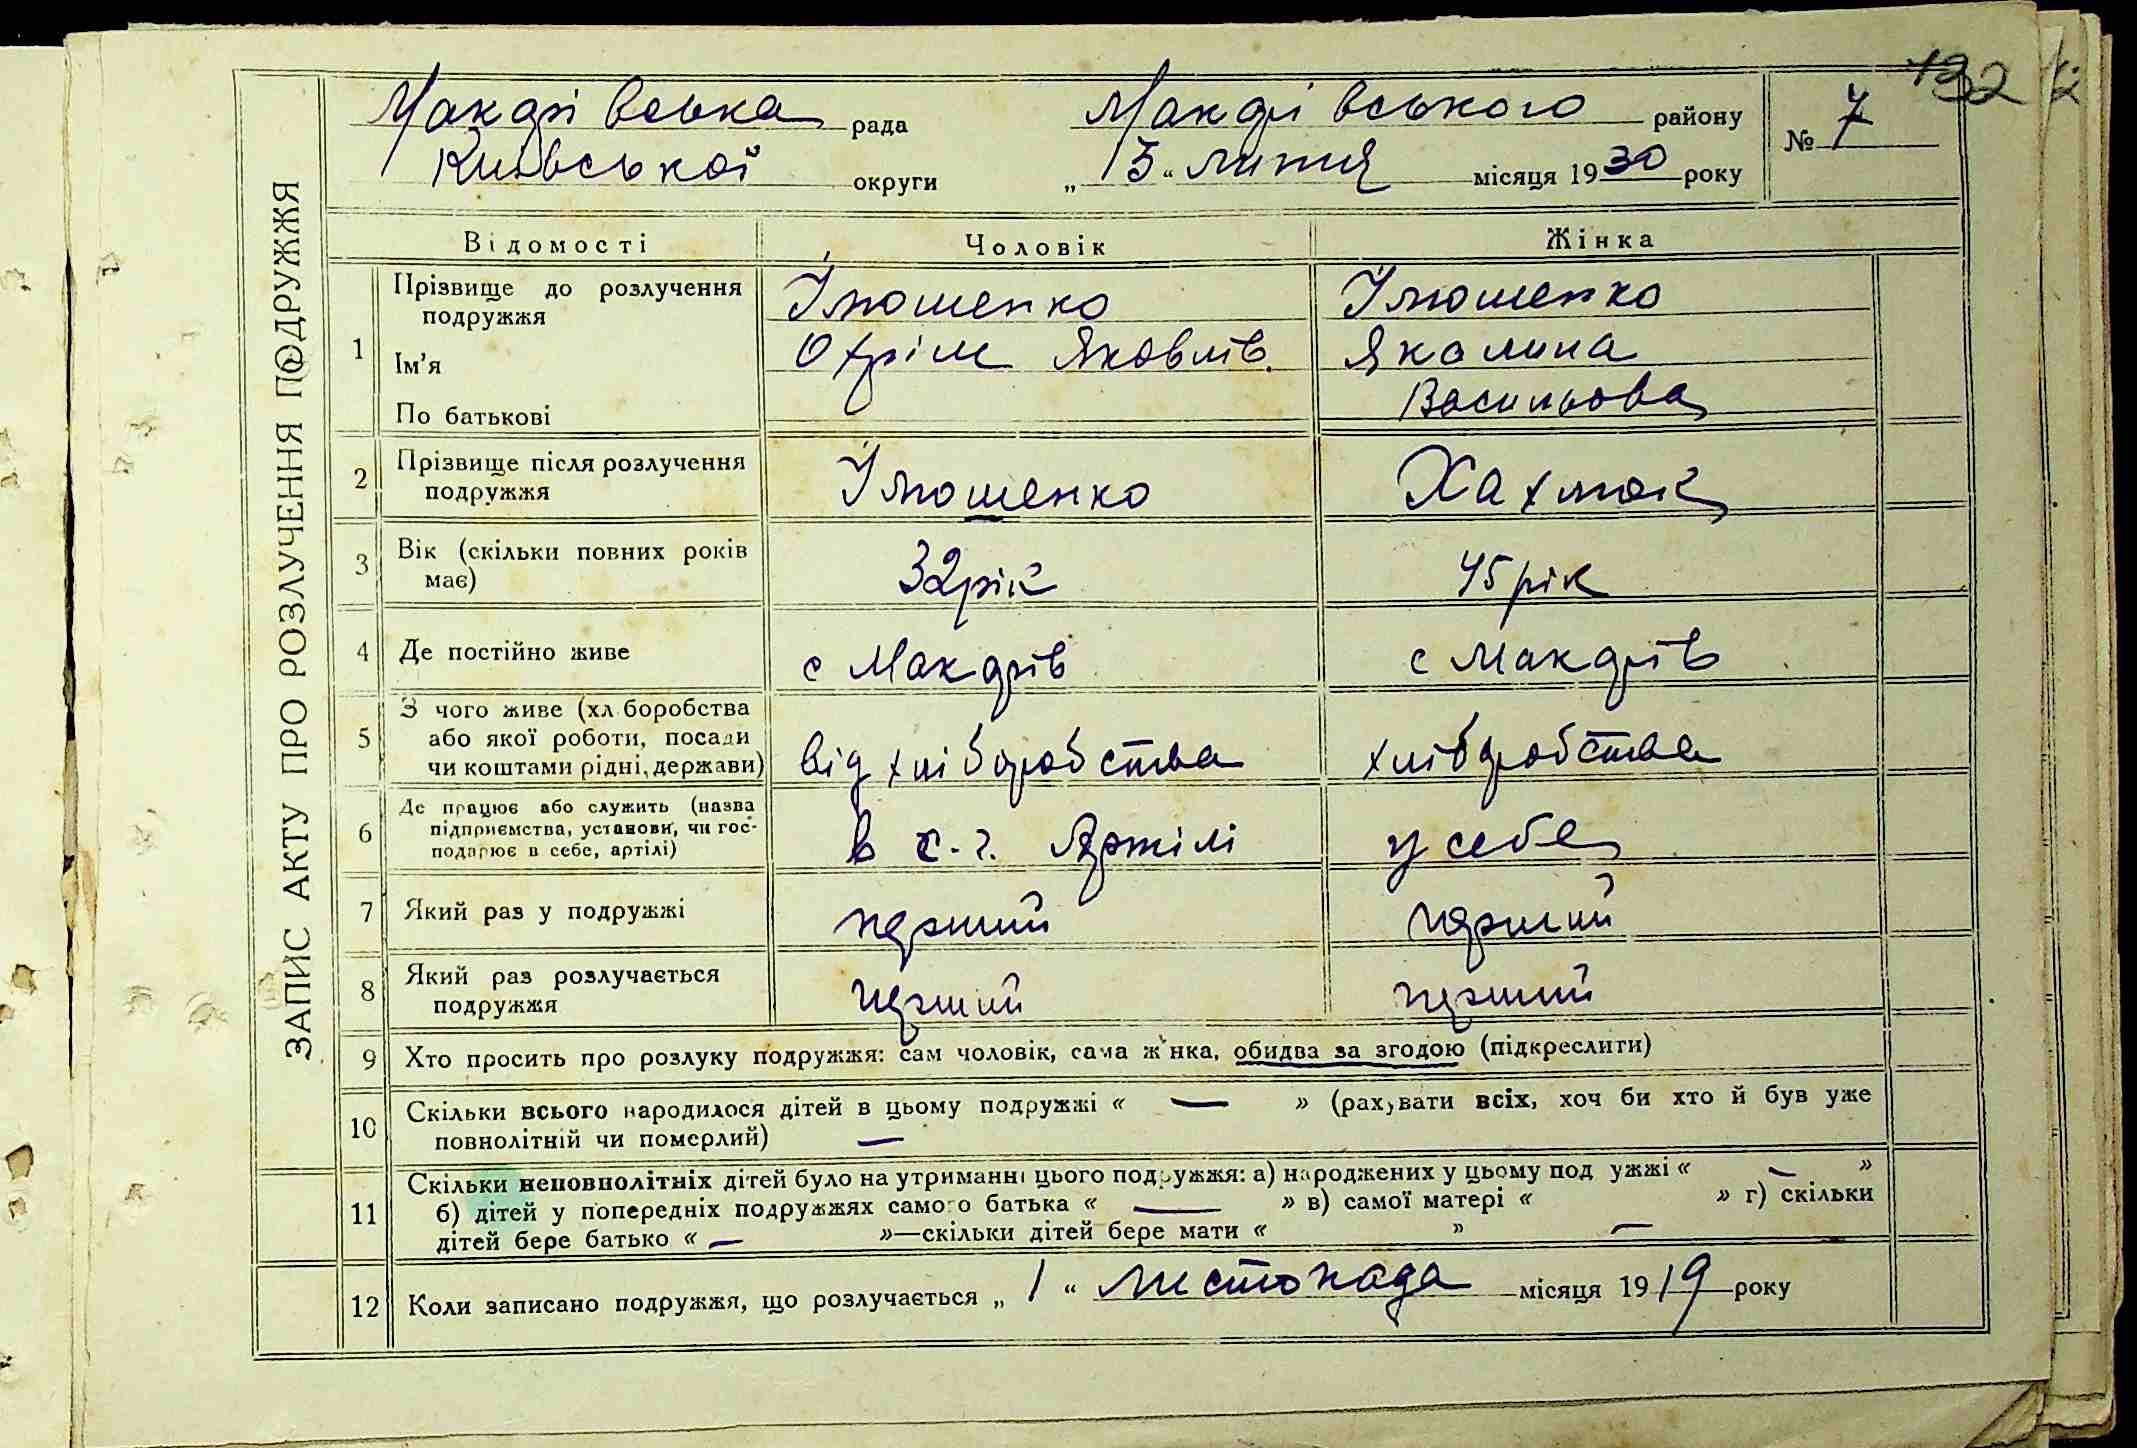 132
Макарівська рада Макарівського району № 7
Київської округи „15“ липня місяця 1930 року
ЗАПИС АКТУ ПРО РОЗЛУЧЕННЯ ПОДРУЖЖЯ
Відомості Чоловік Жінка
1 Прізвище до розлучення подружжя Ілюшенко Ілюшенко
Ім'я Охрім Яковлів. Якилина
По батькові Васильова
2 Прізвище після розлучення подружжя Ілюшенко Хахлюк
3 Вік (скільки повних років має) 32 рік 45 рік
4 Де постійно живе с Макарів с Макарів
5 З чого живе (хл боробства або якої роботи, посади чи коштами рідні, держави) від хліборобства хліборобства
6 Де працює або служить (назва підприємства, установи, чи господарює в себе, артілі) в с.-г. Артілі у себе
7 Який раз у подружжі перший перший
8 Який раз розлучається подружжя перший перший
9 Хто просить про розлуку подружжя: сам чоловік, сама жінка, обидва за згодою (підкреслити)
10 Скільки всього народилося дітей в цьому подружжі « — » (рахувати всіх, хоч би хто й був уже
повнолітній чи померлий) —
11 Скільки неповнолітніх дітей було на утриманні цього подружжя: а) народжених у цьому под ужжі « — »
б) дітей у попередніх подружжях самого батька « — » в) самої матері « » г) скільки
дітей бере батько « — »—скільки дітей бере мати « » —
12 Коли записано подружжя, що розлучається „ 1 “ листопада місяця 1919 року